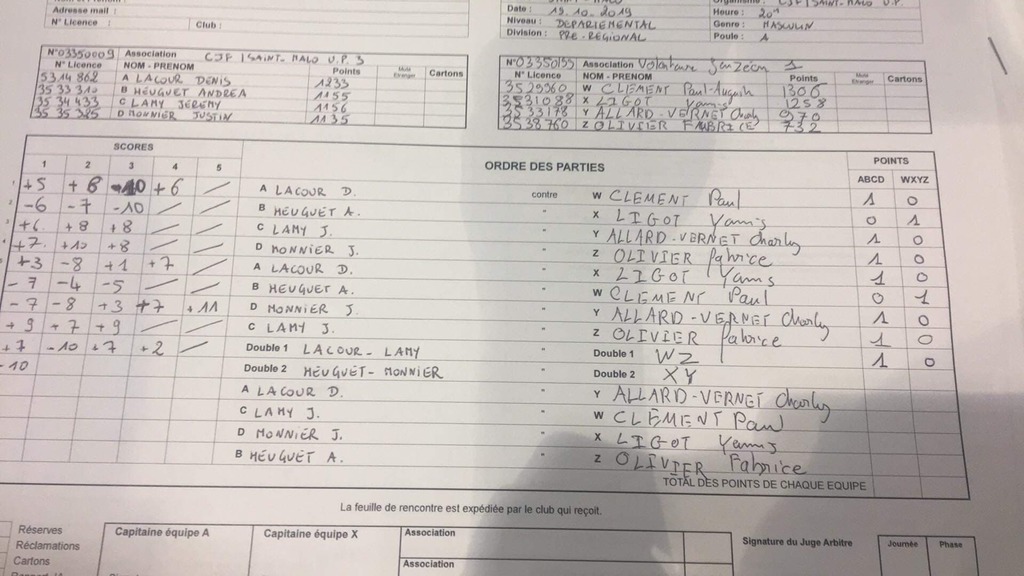 Adresse mail :
N° Licence : Club :
Date : 19.10.2019 Heure : 20H
Niveau : DEPARTEMENTAL Genre : MASCULIN
Division : PRE-REGIONAL Poule : A
N°03350009 Association CJF SAINT-MALO U.P. 3
N°Licence NOM - PRENOM Points Muté Etranger Cartons
5314862 A LACOUR DENIS 1233
3533310 B HEUGUET ANDREA 1155
3534433 C LAMY JEREMY 1156
3535325 D MONNIER JUSTIN 1135
N°03350155 Association Volontaire Janzéen 1
N° Licence NOM - PRENOM Points Muté Etranger Cartons
3529360 W CLEMENT Paul-Auguste 1306
3531088 X LIGOT Yanis 1258
3533178 Y ALLARD-VERNET Charly 970
3538760 Z OLIVIER FABRICE 732
SCORES ORDRE DES PARTIES POINTS
1 2 3 4 5 ABCD WXYZ
+5 +8 -10 +6 / A LACOUR D. contre W CLEMENT Paul 1 0
-6 -7 -10 / / B HEUGUET A. " X LIGOT Yanis 0 1
+6 +8 +8 / / C LAMY J. " Y ALLARD-VERNET Charly 1 0
+7 +10 +8 / / D MONNIER J. " Z OLIVIER Fabrice 1 0
+3 -8 +1 +7 / A LACOUR D. " X LIGOT Yanis 1 0
-7 -4 -5 / / B HEUGUET A. " W CLEMENT Paul 0 1
-7 -8 +3 +7 +11 D MONNIER J. " Y ALLARD-VERNET Charly 1 0
+9 +7 +9 / / C LAMY J. " Z OLIVIER Fabrice 1 0
+7 -10 +7 +2 / Double 1 LACOUR-LAMY " Double 1 WZ 1 0
-10 Double 2 HEUGUET-MONNIER " Double 2 XY
A LACOUR D. " Y ALLARD-VERNET Charly
C LAMY J. " W CLEMENT Paul
D MONNIER J. " X LIGOT Yanis
B HEUGUET A. " Z OLIVIER Fabrice
TOTAL DES POINTS DE CHAQUE EQUIPE
La feuille de rencontre est expédiée par le club qui reçoit.
Réserves Capitaine équipe A Capitaine équipe X Association Signature du Juge Arbitre Journée Phase
Réclamations
Cartons Association